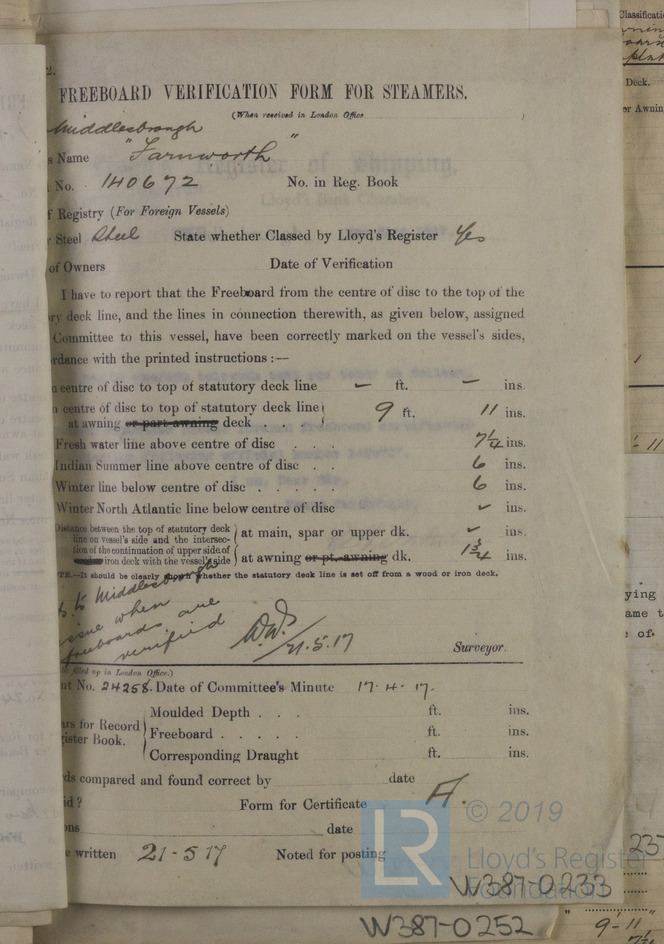 2.
FREEBOARD VERIFICATION FORM FOR STEAMERS.
(When received in London Office )
Middlesbrough
s Name "Farnworth"
No. 140672 No. in Reg. Book
f Registry (For Foreign Vessels)
r Steel Steel State whether Classed by Lloyd's Register Yes
of Owners Date of Verification
I have to report that the Freeboard from the centre of disc to the top of the
ry deck line, and the lines in connection therewith, as given below, assigned
Committee to this vessel, have been correctly marked on the vessel's sides,
rdance with the printed instructions :—
n centre of disc to top of statutory deck line – ft. – ins.
n centre of disc to top of statutory deck line
at awning or part awning deck . . . 9 ft. 11 ins.
Fresh water line above centre of disc . . . 7¼ ins.
Indian Summer line above centre of disc . . 6 ins.
Winter line below centre of disc . . . . . 6 ins.
Winter North Atlantic line below centre of disc ins.
Distance between the top of statutory deck
line on vessel's side and the intersec-
tion of the continuation of upper side of
iron deck with the vessel's side
at main, spar or upper dk. ins.
at awning or pt. awning dk. 1¾ ins.
TE.—It should be clearly shown whether the statutory deck line is set off from a wood or iron deck.
to Middlesbrough
issue when
freeboards are
verified
21.5.17 Surveyor.
filled up in London Office.)
nt No. 24258. Date of Committee's Minute 17.4.17.
ars for Record
ister Book.
Moulded Depth . . . ft. ins.
Freeboard . . . . . ft. ins.
Corresponding Draught ft. ins.
ds compared and found correct by date
id ? Form for Certificate A.
ons date
e written 21-5-17 Noted for posting
© 2019
LR
Lloyd's Register
Foundation
W387-0233
W387-0252
Classificati
Deck.
or Awnin
1
ying
ame t
of
235
9-11